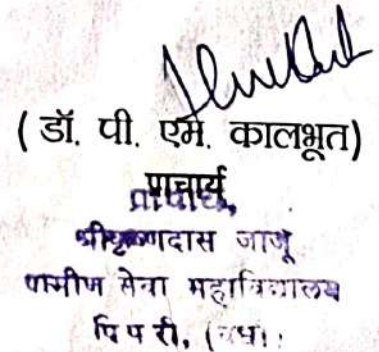 ( डॉ. पी. एम. कालभूत)
प्राचार्य
प्राचार्य,
श्रीकृष्णदास जाजू
ग्रामीण सेवा महाविद्यालय
पिपरी, (वर्धा)